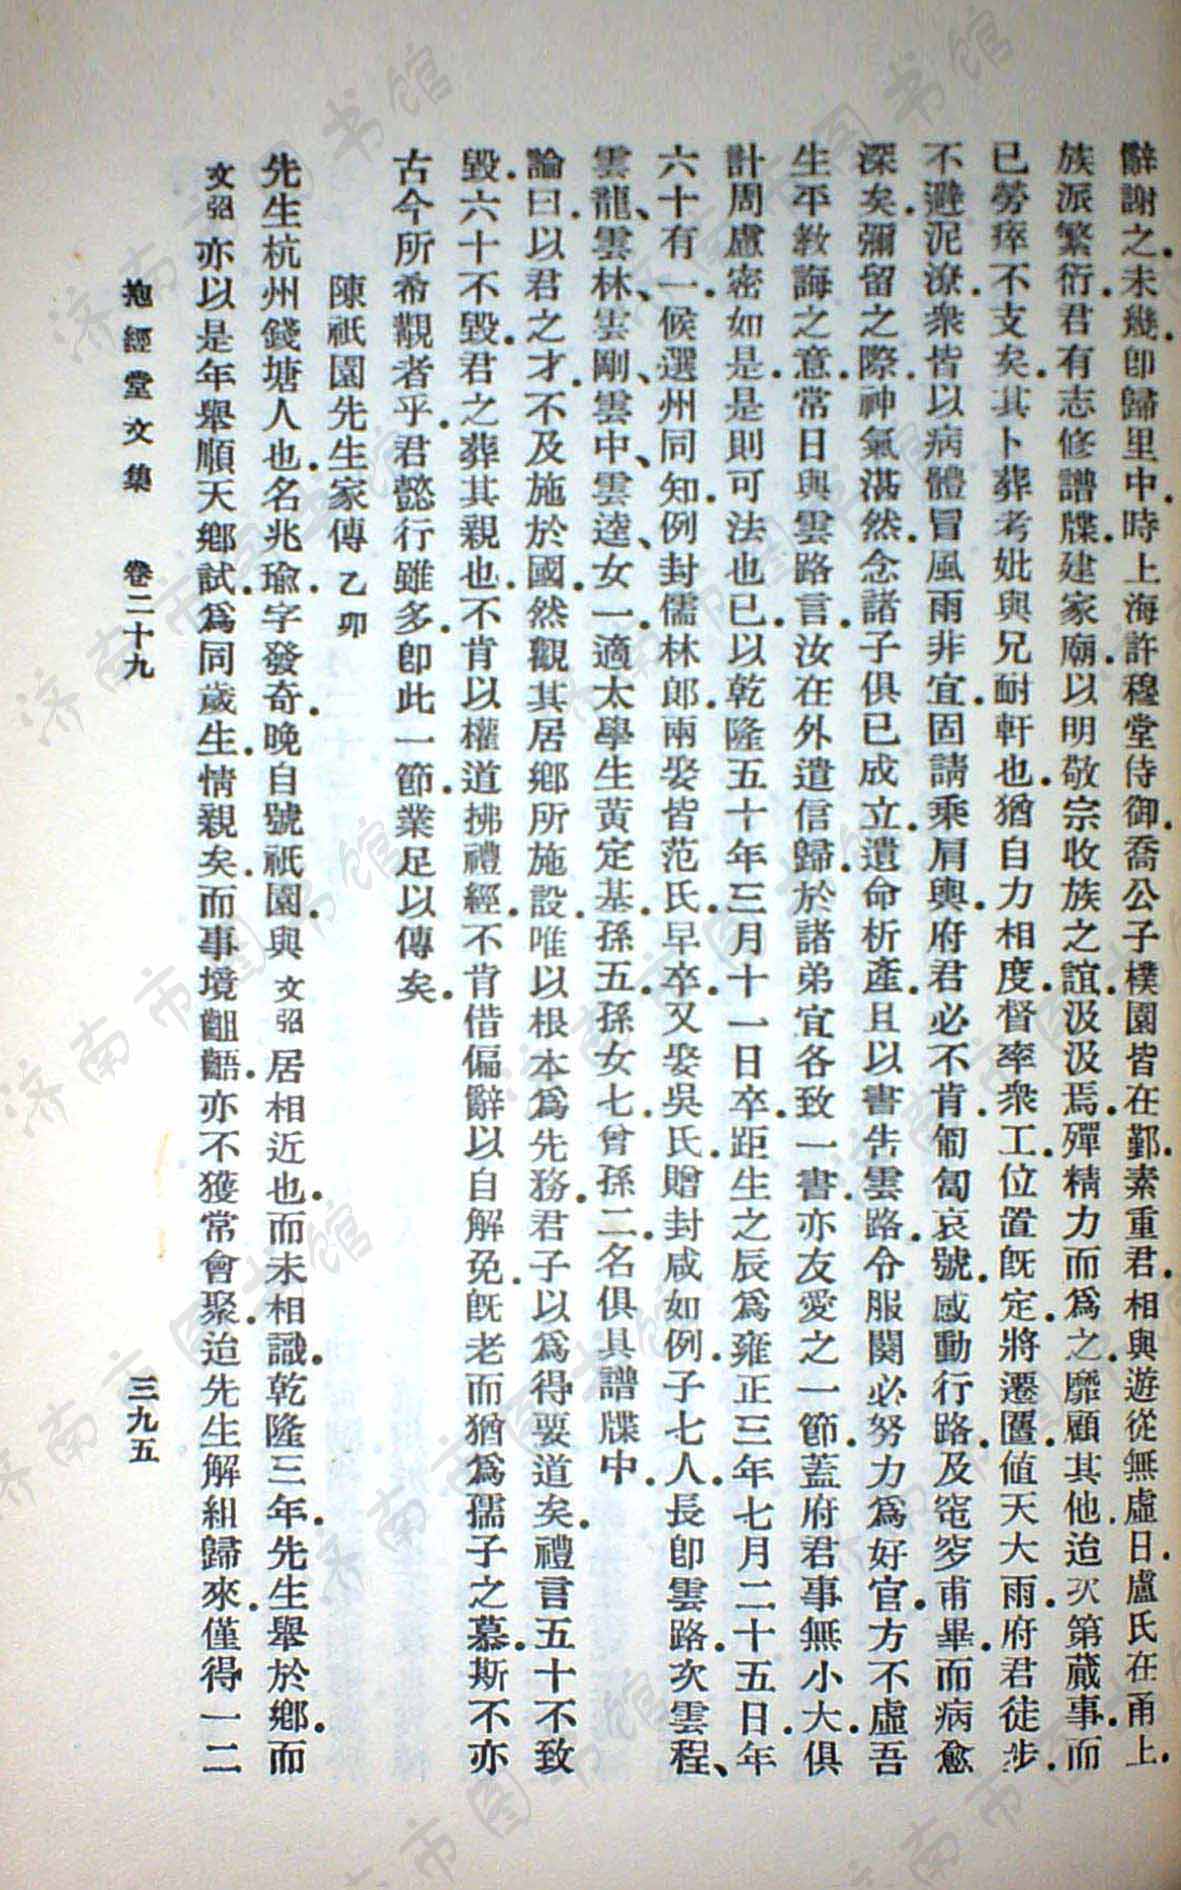 辭謝之.未幾.卽歸里中.時上海許穆堂侍御.喬公子樸園.皆在鄞.素重君.相與遊從無虛日.盧氏在甬上.
族派繁衍.君有志修譜牒.建家廟.以明敬宗收族之誼.汲汲焉.殫精力而爲之.靡顧其他.迨次第蕆事.而
已勞瘁不支矣.其卜葬考妣與兄耐軒也.猶自力相度.督率衆工.位置旣定.將遷匶.値天大雨.府君徒步.
不避泥潦.衆皆以病體冒風雨非宜.固請乘肩輿.府君必不肯.匍匐哀號.感動行路.及窀穸甫畢.而病愈
深矣.彌留之際.神氣湛然.念諸子俱已成立.遺命析產.且以書吿雲路.令服闋必努力爲好官.方不虛吾
生平敎誨之意.常日與雲路言.汝在外遣信歸.於諸弟宜各致一書.亦友愛之一節.蓋府君事無小大.俱
計周慮密如是.是則可法也已.以乾隆五十年三月十一日卒.距生之辰爲雍正三年七月二十五日.年
六十有一.候選州同知.例封儒林郎.兩娶皆范氏.早卒.又娶吳氏.贈封咸如例.子七人.長卽雲路.次雲程、
雲龍、雲林、雲剛、雲中、雲逵、女一.適太學生黃定基.孫五.孫女七.曾孫二.名俱具譜牒中.
論曰.以君之才.不及施於國.然觀其居鄉所施設.唯以根本爲先務.君子以爲得要道矣.禮言五十不致
毀.六十不毀.君之葬其親也.不肯以權道拂禮經.不肯借偏辭以自解免.旣老而猶爲孺子之慕.斯不亦
古今所希觀者乎.君懿行雖多.卽此一節.業足以傳矣.
陳祇園先生家傳 乙卯
先生杭州錢塘人也.名兆瑜.字發奇.晚自號祇園.與文弨居相近也.而未相識.乾隆三年.先生舉於鄉.而
文弨亦以是年舉順天鄉試.爲同歲生.情親矣.而事境齟齬.亦不獲常會聚.迨先生解組歸來.僅得一二
抱經堂文集 卷二十九 三九五